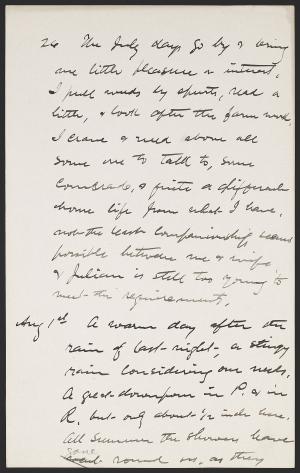 26 The July days go by & bring
me little pleasure or interest.
I pull weeds by spurts, read a
little, & look after the farm work.
I crave & need above all
some one to talk to, some
comrade, & quite a different
home life from what I have,
not the least companionship seems
possible between me & wife
& Julian is still too young to
meet the requirements.
Aug 1st A warm day after the
rain of last night, a stingy
rain considering our needs.
A great downpour in P. & in
R. but only about ½ inch here.
All summer the showers have
gone round us, as they